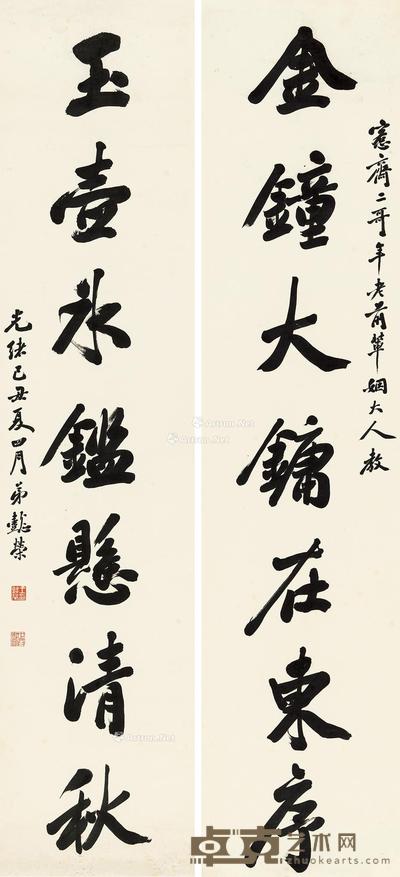 愙齋二哥年老前輩姻大人教
金鐘大鏞在東序
玉壺氷鑑懸清秋
光緒己丑夏四月弟懿榮
Artron.Net
Artron.Net
Artron.Net
Artron.Net
卓克艺术网
http://www.zhuokearts.com